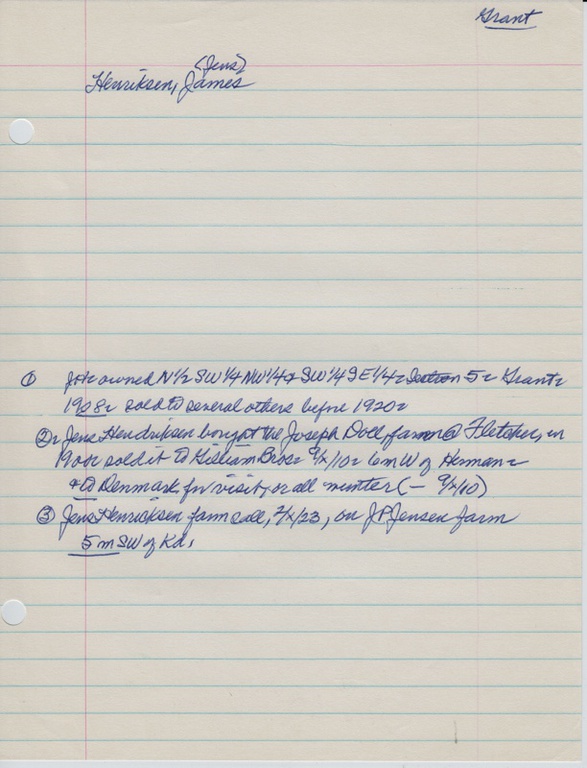 Grant
(Jens)
Henriksen, James
① JH owned N 1/2 SW 1/4 NW 1/4 & SW 1/4 SE 1/4 Section 5 Grant
1908 sold to several others before 1920
② Jens Hendriksen bought the Joseph Doll farm @ Fletcher, in
sold it to Gilliam Bros 9/x/10 6 m W of Herman
& to Denmark for visit, or all winter (- 9/x/10)
③ Jens Henricksen farm sall, 2/x/23, on J.P. Jensen farm
5 m SW of Kd.